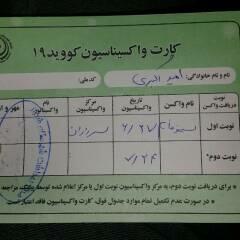 کارت واکسیناسیون کووید ۱۹
نام و نام خانوادگی: امیر اکبری کد ملی:
نوبت دریافت واکسن نام واکسن تاریخ واکسیناسیون مرکز واکسیناسیون نام واکسیناتور مهر و ا
نوبت اول ۶/۲۷
نوبت دوم* ۷/۲۴
* برای دریافت نوبت دوم، به مرکز واکسیناسیون نوبت اول یا مرکز اعلام شده توسط مراجعه
* در صورت عدم تکمیل تمام موارد جدول فوق، کارت واکسیناسیون فاقد اعتبار است